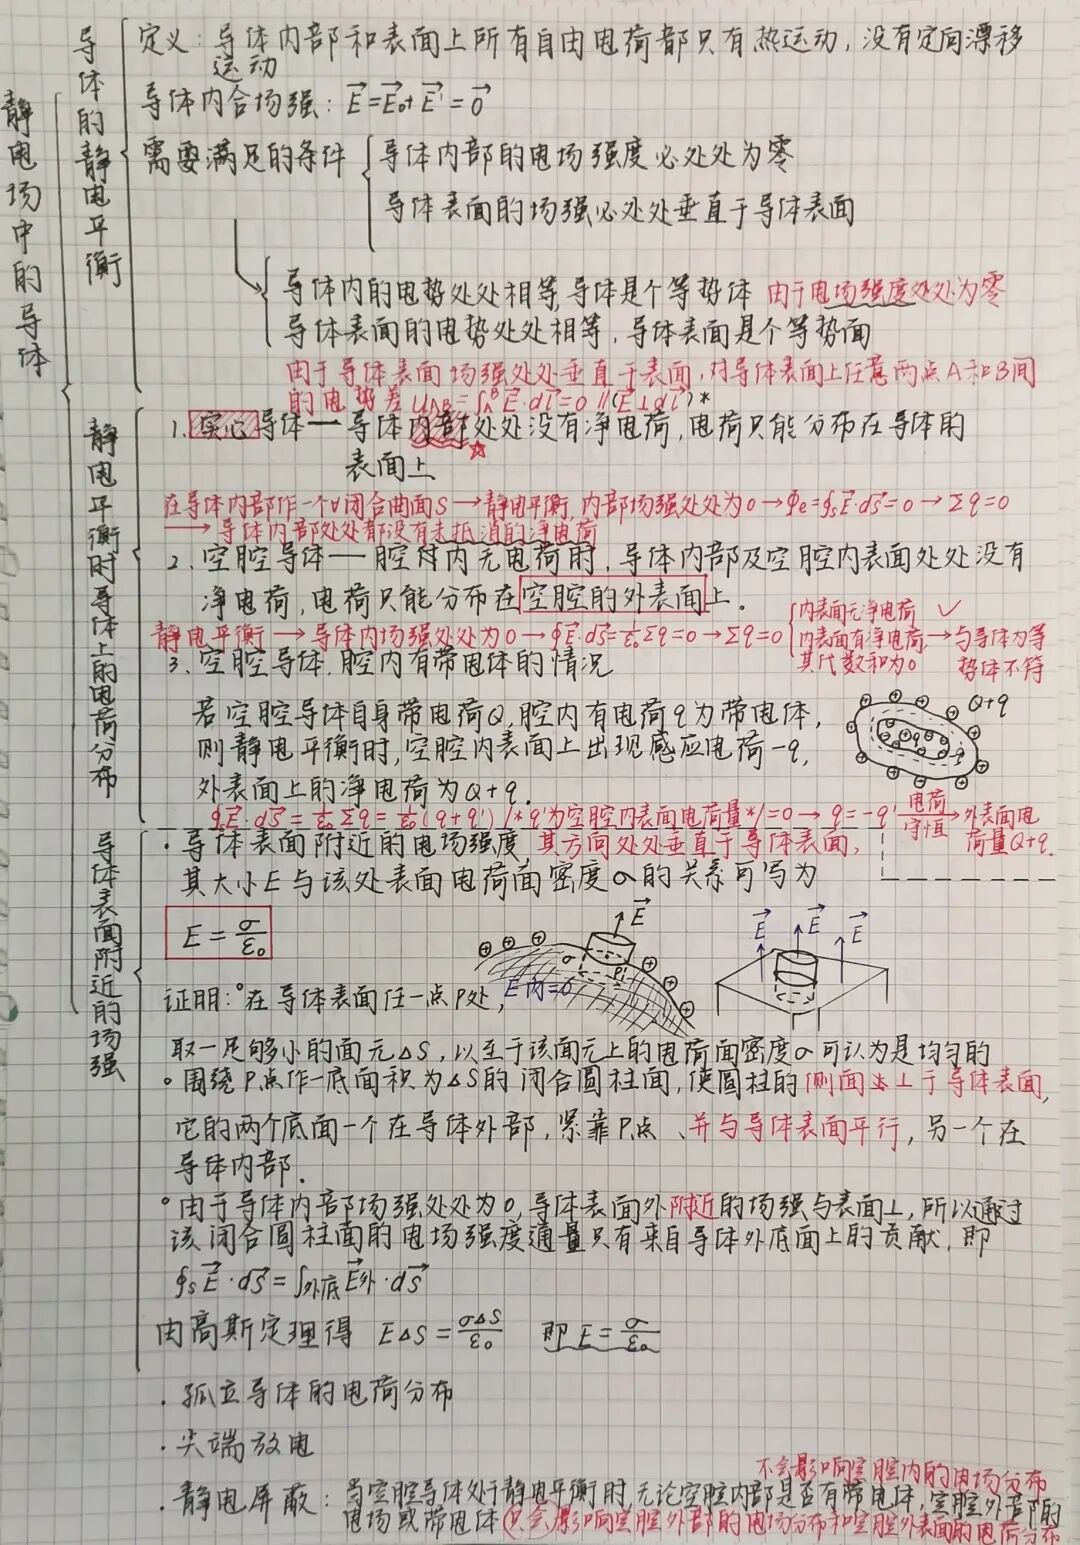 静电场中的导体
导体的静电平衡
定义：导体内部和表面上所有自由电荷都只有热运动，没有定向漂移
运动
导体内合场强：E⃗=E⃗₀+E⃗'=0⃗
需要满足的条件
导体内部的电场强度必处处为零
导体表面的场强必处处垂直于导体表面
导体内的电势处处相等，导体是个等势体 由于电场强度处处为零
导体表面的电势处处相等，导体表面是个等势面
由于导体表面场强处处垂直于表面，对导体表面上任意两点A和B间
的电势差 U_AB=∫_A^B E⃗·dl⃗=0 //(E⃗⊥dl⃗)*
静电平衡时导体上的电荷分布
1. 实心导体——导体内部处处没有净电荷，电荷只能分布在导体的
表面上
在导体内部作一个∀闭合曲面S→静电平衡，内部场强处处为0→Φe=∮s E⃗·dS⃗=0→Σq=0
→导体内部处处都没有未抵消的净电荷
2. 空腔导体——腔内无电荷时，导体内部及空腔内表面处处没有
净电荷，电荷只能分布在空腔的外表面上.
静电平衡→导体内场强处处为0→∮E⃗·dS⃗=1/ε₀Σq=0→Σq=0
内表面无净电荷 ✓
内表面有净电荷，→与导体为等
其代数和为0 势体不符
3. 空腔导体.腔内有带电体的情况
若空腔导体自身带电荷Q，腔内有电荷q为带电体，
则静电平衡时，空腔内表面上出现感应电荷-q，
外表面上的净电荷为Q+q.
Q+q
q
-q
∮s E⃗·dS⃗=1/ε₀Σq=1/ε₀(q+q') /*q'为空腔内表面电荷量*/=0→q=-q' 电荷守恒→外表面电
荷量Q+q.
导体表面附近的场强
·导体表面附近的电场强度 其方向处处垂直于导体表面，
其大小E与该处表面电荷面密度σ的关系可写为
E=σ/ε₀
E⃗
σ
P
E内=0
E⃗ E⃗ E⃗
证明：°在导体表面任一点P处，
取一足够小的面元△S，以至于该面元上的电荷面密度σ可认为是均匀的
°围绕P点作一底面积为△S的闭合圆柱面，使圆柱的侧面⊥于导体表面，
它的两个底面一个在导体外部，紧靠P点、并与导体表面平行，另一个在
导体内部.
°由于导体内部场强处处为0，导体表面外附近的场强与表面⊥，所以通过
该闭合圆柱面的电场强度通量只有来自导体外底面上的贡献，即
∮s E⃗·dS⃗=∫外底 E⃗外·dS⃗
由高斯定理得 E△S=σ△S/ε₀ 即E=σ/ε₀
·孤立导体的电荷分布
·尖端放电
不会影响空腔内的电场分布
·静电屏蔽：当空腔导体处于静电平衡时，无论空腔内部是否有带电体，空腔外部的
电场或带电体只会影响空腔外部的电场分布和空腔外表面的电荷分布